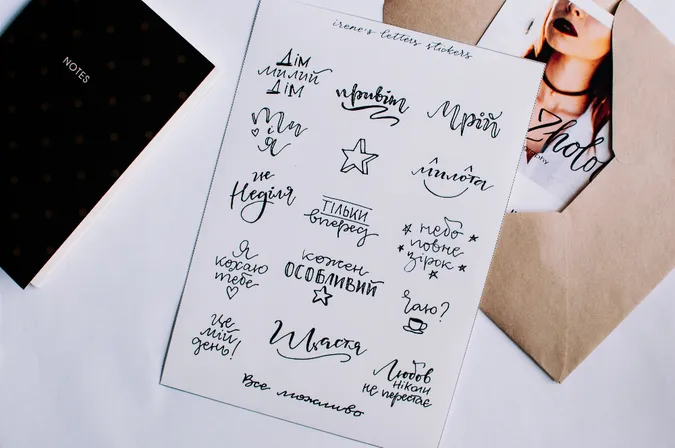 NOTES
irene's letters stickers
Дім
милий
Дім
привіт
Мрій
Ти
і
я
милота
це
Неділя
ТІЛЬКИ
вперед
небо
повне
зірок
Я
кохаю
тебе
кожен
ОСОБЛИВИЙ
Чаю?
це
мій
день!
Щастя
Любов
ніколи
не перестає
Все можливо
Zholo